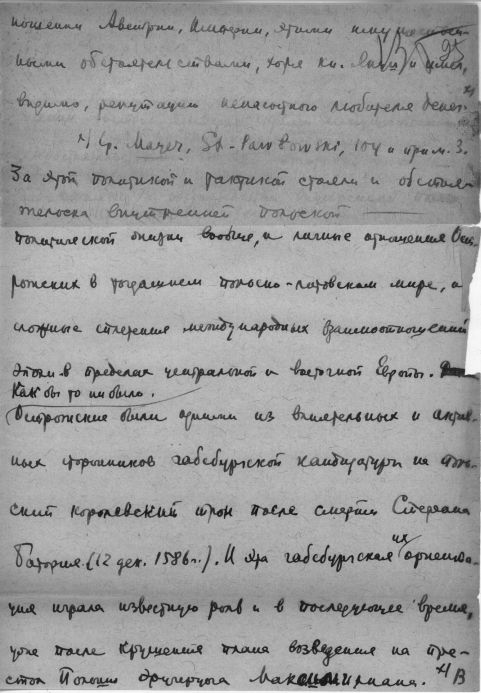 ношении Австрии, Империи, этими
ными обстоятельствами, хотя кн. Януш и имел,
видимо, репутацию ненасытного любителя денег. х)
х) Ср. Mayer, St. Pawłowski, 104 и прим. 3.
За этой политикой и тактикой стояли и обстоя-
внутренней польской
политической жизни вообще, и личные отношения Ост-
рожских в тогдашнем польско-литовском мире, и
сложные сплетения международных взаимоотношений
эпохи в пределах центральной и восточной Европы.
Как бы то ни было,
Острожские были одними из влиятельных и актив-
ных сторонников габсбургской кандидатуры на поль-
ский королевский трон после смерти Стефана
Батория (12 дек. 1586 г.). И эта габсбургская их ориента-
ция играла известную роль и в последующее время,
уже после крушения плана возведения на пре-
стол Польши эрцгерцога Максимилиана. х) В